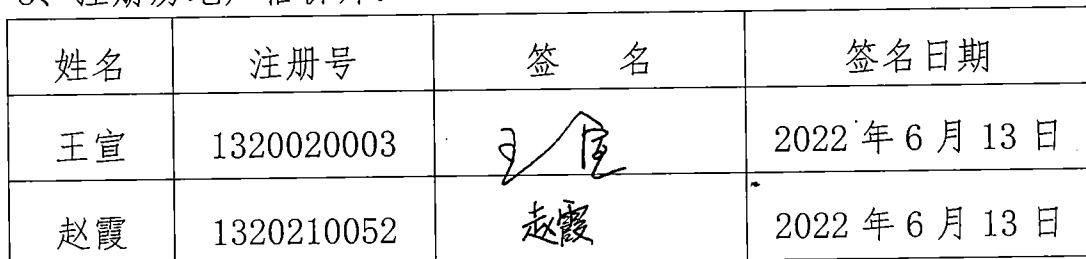 姓名 注册号 签 名 签名日期
王宣 1320020003 王宣 2022年6月13日
赵霞 1320210052 赵霞 2022年6月13日